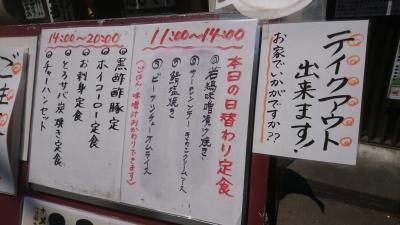 テイクアウト
出来ます!
お家でいかがですか??
11:00~14:00
本日の日替わり定食
①若鶏味噌漬け焼き
②サーモンソテー きのこクリームソース
③鯖塩焼き
⑤ビーフシチューオムライス
(ごはん・味噌汁おかわりできます)
14:00~20:00
黒酢酢豚定食
ホイコーロー定食
お刺身定食
とろサバ炭焼き定食
チャーハンセット